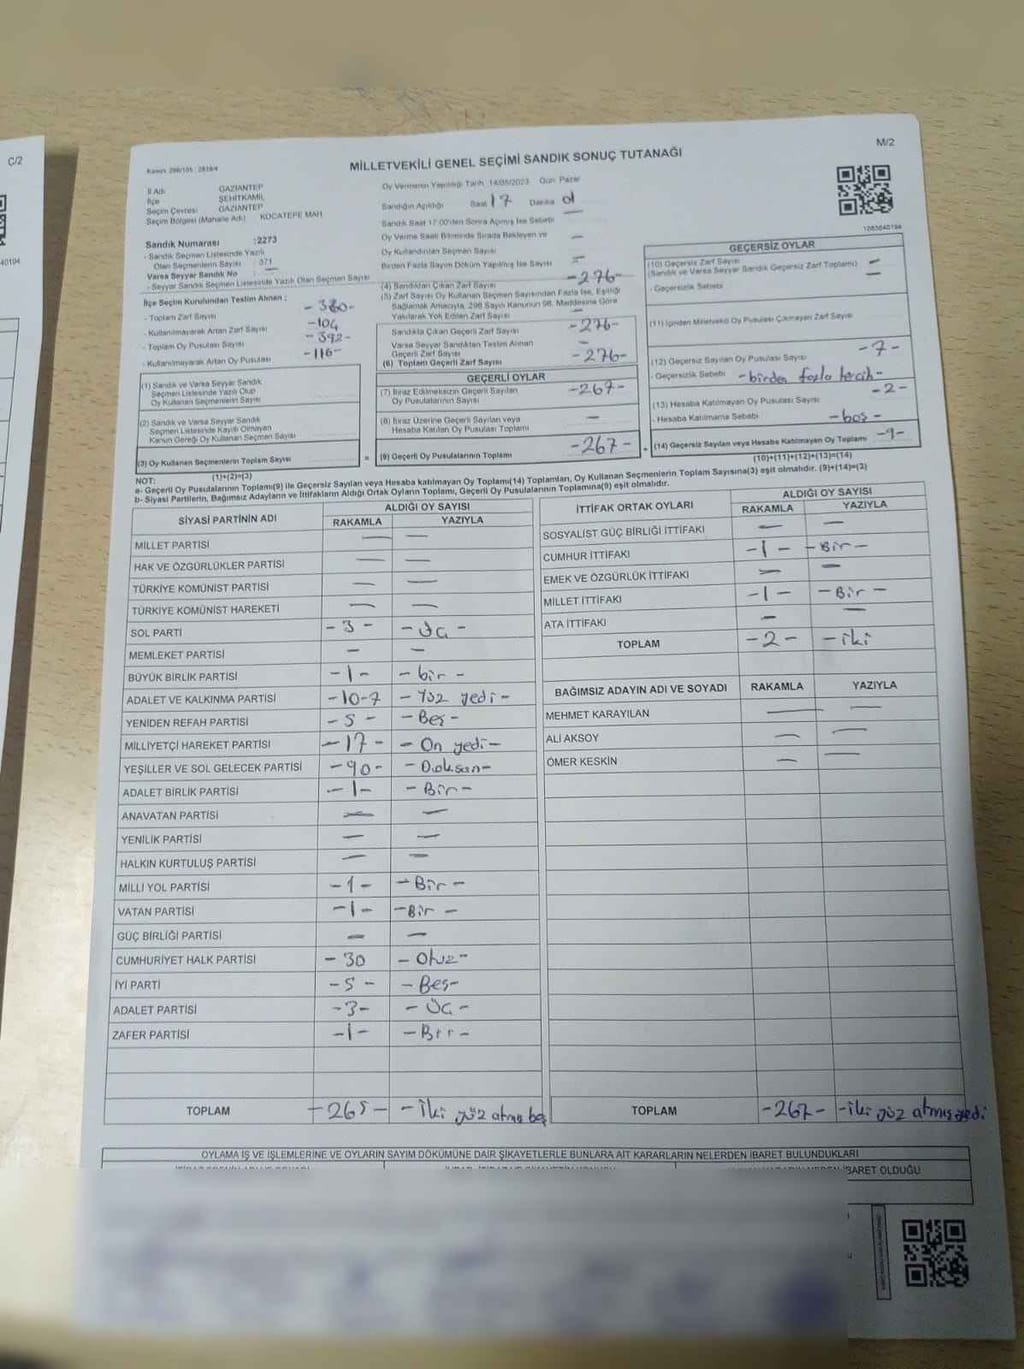 C/2
40194
M/2
Kanun 298/105 : 2839/4
MİLLETVEKİLİ GENEL SEÇİMİ SANDIK SONUÇ TUTANAĞI
İl Adı GAZİANTEP
İlçe ŞEHİTKAMİL
Seçim Çevresi GAZİANTEP
Seçim Bölgesi (Mahalle Adı) KOCATEPE MAH
Sandık Numarası :2273
- Sandık Seçmen Listesinde Yazılı
Olan Seçmenlerin Sayısı 371
Varsa Seyyar Sandık No —
- Seyyar Sandık Seçmen Listesinde Yazılı Olan Seçmen Sayısı
İlçe Seçim Kurulundan Teslim Alınan :
- Toplam Zarf Sayısı -380-
- Kullanılmayarak Artan Zarf Sayısı -104
- Toplam Oy Pusulası Sayısı -392-
- Kullanılmayarak Artan Oy Pusulası -116-
(1) Sandık ve Varsa Seyyar Sandık
Seçmen Listesinde Yazılı Olup
Oy Kullanan Seçmenlerin Sayısı
(2) Sandık ve Varsa Seyyar Sandık
Seçmen Listesinde Kayıtlı Olmayan
Kanun Gereği Oy Kullanan Seçmen Sayısı
(3) Oy Kullanan Seçmenlerin Toplam Sayısı
(1)+(2)=(3)
Oy Vermenin Yapıldığı Tarih 14/05/2023 Gün Pazar
Sandığın Açıldığı Saat 17 Dakika 01
Sandık Saat 17:00'den Sonra Açılmış İse Sebebi —
Oy Verme Saati Bitiminde Sırada Bekleyen ve
Oy Kullandırılan Seçmen Sayısı —
Birden Fazla Sayım Döküm Yapılmış İse Sayısı —
(4) Sandıktan Çıkan Zarf Sayısı -276-
(5) Zarf Sayısı Oy Kullanan Seçmen Sayısından Fazla İse, Eşitliği
Sağlamak Amacıyla, 298 Sayılı Kanunun 98. Maddesine Göre
Yakılarak Yok Edilen Zarf Sayısı —
Sandıkta Çıkan Geçerli Zarf Sayısı -276-
Varsa Seyyar Sandıktan Teslim Alınan
Geçerli Zarf Sayısı —
(6) Toplam Geçerli Zarf Sayısı -276-
GEÇERLİ OYLAR
(7) İtiraz Edilmeksizin Geçerli Sayılan
Oy Pusulalarının Sayısı -267-
(8) İtiraz Üzerine Geçerli Sayılan veya
Hesaba Katılan Oy Pusulası Toplamı —
(9) Geçerli Oy Pusulalarının Toplamı -267-
1083640194
GEÇERSİZ OYLAR
(10) Geçersiz Zarf Sayısı —
(Sandık ve Varsa Seyyar Sandık Geçersiz Zarf Toplamı) —
- Geçersizlik Sebebi
(11) İçinden Milletvekili Oy Pusulası Çıkmayan Zarf Sayısı
(12) Geçersiz Sayılan Oy Pusulası Sayısı -7-
- Geçersizlik Sebebi -birden fazla tercih-
(13) Hesaba Katılmayan Oy Pusulası Sayısı -2-
- Hesaba Katılmama Sebebi -boş-
(14) Geçersiz Sayılan veya Hesaba Katılmayan Oy Toplamı -9-
(10)+(11)+(12)+(13)=(14)
NOT:
a- Geçerli Oy Pusulalarının Toplamı(9) ile Geçersiz Sayılan veya Hesaba katılmayan Oy Toplamı(14) Toplamları, Oy Kullanan Seçmenlerin Toplam Sayısına(3) eşit olmalıdır. (9)+(14)=(3)
b- Siyasi Partilerin, Bağımsız Adayların ve İttifakların Aldığı Ortak Oyların Toplamı, Geçerli Oy Pusulalarının Toplamına(9) eşit olmalıdır.
SİYASİ PARTİNİN ADI ALDIĞI OY SAYISI
RAKAMLA YAZIYLA
MİLLET PARTİSİ — —
HAK VE ÖZGÜRLÜKLER PARTİSİ — —
TÜRKİYE KOMÜNİST PARTİSİ — —
TÜRKİYE KOMÜNİST HAREKETİ — —
SOL PARTİ -3- -Üç-
MEMLEKET PARTİSİ — —
BÜYÜK BİRLİK PARTİSİ -1- -bir-
ADALET VE KALKINMA PARTİSİ -10-7 -Yüz yedi-
YENİDEN REFAH PARTİSİ -5- -Beş-
MİLLİYETÇİ HAREKET PARTİSİ -17- -On yedi-
YEŞİLLER VE SOL GELECEK PARTİSİ -90- -Doksan-
ADALET BİRLİK PARTİSİ -1- -Bir-
ANAVATAN PARTİSİ — —
YENİLİK PARTİSİ — —
HALKIN KURTULUŞ PARTİSİ — —
MİLLİ YOL PARTİSİ -1- -Bir-
VATAN PARTİSİ -1- -Bir-
GÜÇ BİRLİĞİ PARTİSİ — —
CUMHURİYET HALK PARTİSİ -30 -Otuz-
İYİ PARTİ -5- -Beş-
ADALET PARTİSİ -3- -Üç-
ZAFER PARTİSİ -1- -Bir-
TOPLAM -265- -İki yüz atmış beş
İTTİFAK ORTAK OYLARI ALDIĞI OY SAYISI
RAKAMLA YAZIYLA
SOSYALİST GÜÇ BİRLİĞİ İTTİFAKI — —
CUMHUR İTTİFAKI -1- -Bir-
EMEK VE ÖZGÜRLÜK İTTİFAKI — —
MİLLET İTTİFAKI -1- -Bir-
ATA İTTİFAKI — —
TOPLAM -2- -iki
BAĞIMSIZ ADAYIN ADI VE SOYADI RAKAMLA YAZIYLA
MEHMET KARAYILAN — —
ALİ AKSOY — —
ÖMER KESKİN — —
TOPLAM -267- -iki yüz atmış yedi
OYLAMA İŞ VE İŞLEMLERİNE VE OYLARIN SAYIM DÖKÜMÜNE DAİR ŞİKAYETLERLE BUNLARA AİT KARARLARIN NELERDEN İBARET BULUNDUKLARI
İBARET OLDUĞU